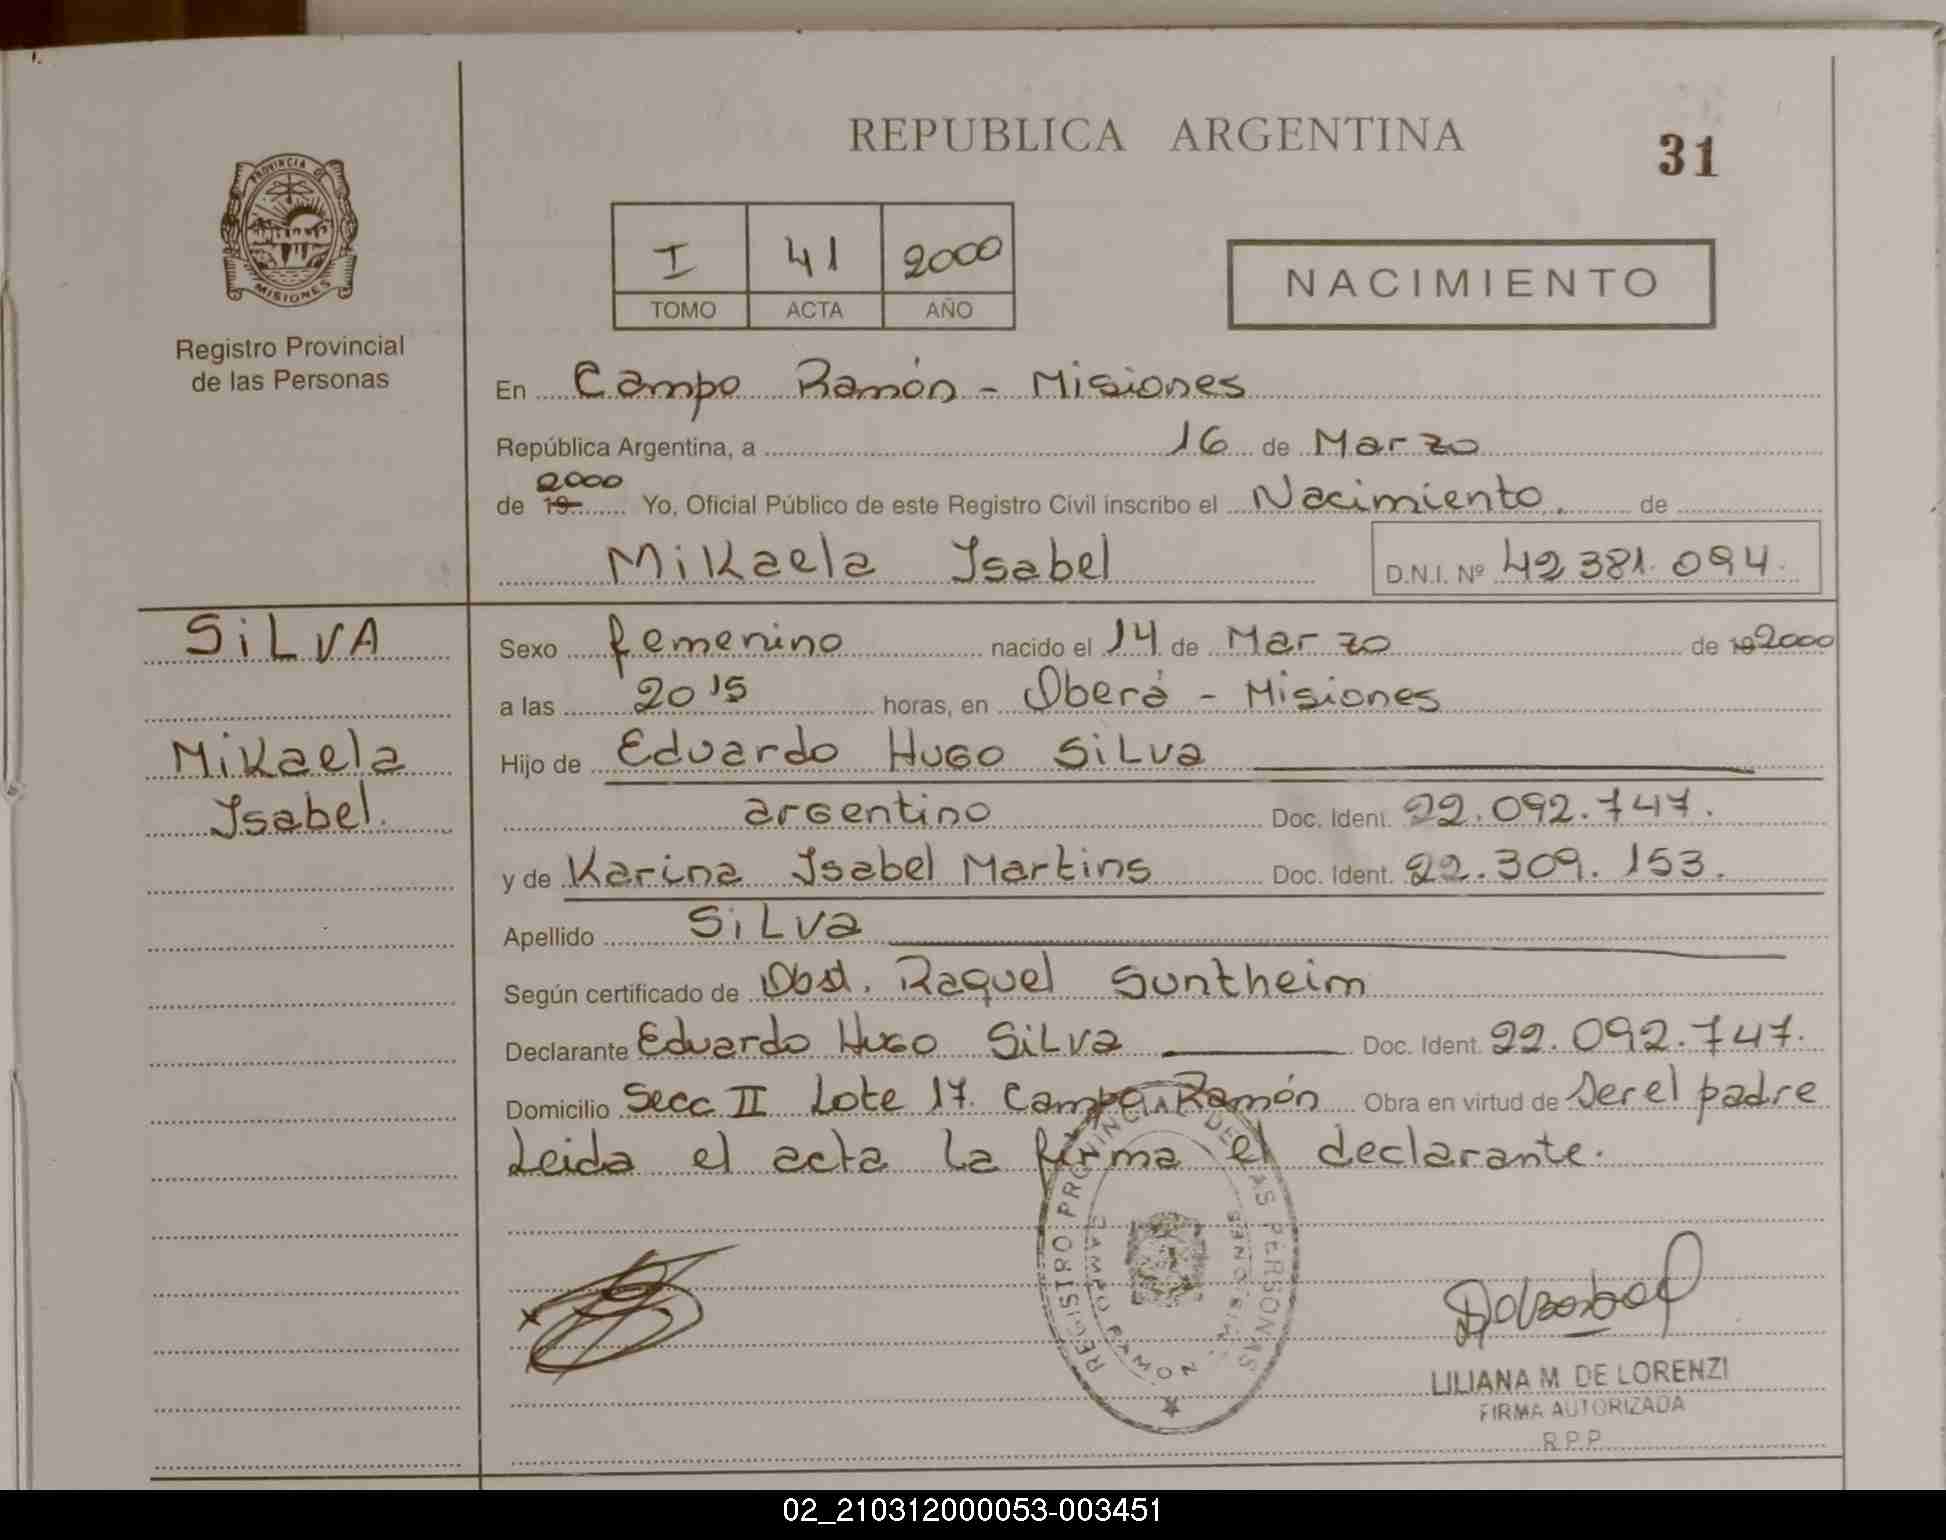 REPUBLICA ARGENTINA
31
PROVINCIA DE
MISIONES
Registro Provincial
de las Personas
I 41 2000
TOMO ACTA AÑO
NACIMIENTO
En Campo Ramón - Misiones
República Argentina, a 16 de Marzo
2000
de 19 Yo, Oficial Público de este Registro Civil inscribo el Nacimiento. de
Mikaela Isabel D.N.I. Nº 42 381.094.
SILVA
Mikaela
Isabel.
Sexo femenino nacido el 14 de Marzo de 19 2000
a las 20 15 horas, en Oberá - Misiones
Hijo de Eduardo Hugo Silva
argentino Doc. Ident. 22.092.747.
y de Karina Isabel Martins Doc. Ident. 22.309.153.
Apellido Silva
Según certificado de Obst. Raquel Suntheim
Declarante Eduardo Hugo Silva Doc. Ident. 22.092.747.
Domicilio Secc II Lote 17. Campo Ramón Obra en virtud de Ser el padre
Leida el acta la firma el declarante.
REGISTRO PROVINCIAL DE LAS PERSONAS
CAMPO RAMON
MISIONES
LILIANA M. DE LORENZI
FIRMA AUTORIZADA
R.P.P.
02_210312000053-003451